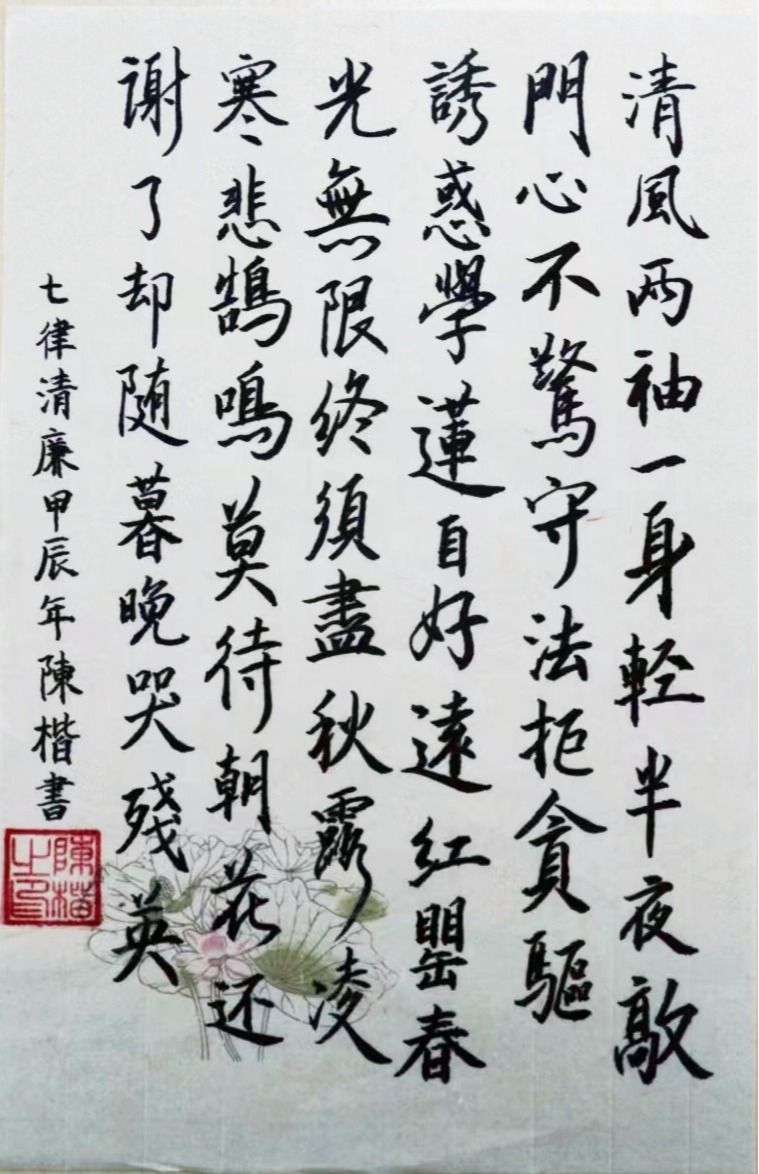 清風兩袖一身輕半夜敲
門心不驚守法拒貪驅
誘惑學蓮自好遠紅罌春
光無限終須盡秋露凌
寒悲鵠鳴莫待朝花还
谢了却随暮晚哭殘英
七律清廉甲辰年陳楷書
陳楷之印